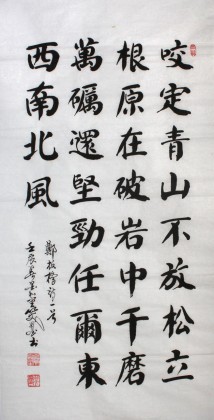 咬定青山不放松立
根原在破岩中千磨
萬礪還堅勁任爾東
西南北風
鄭板橋詩一首
壬辰春